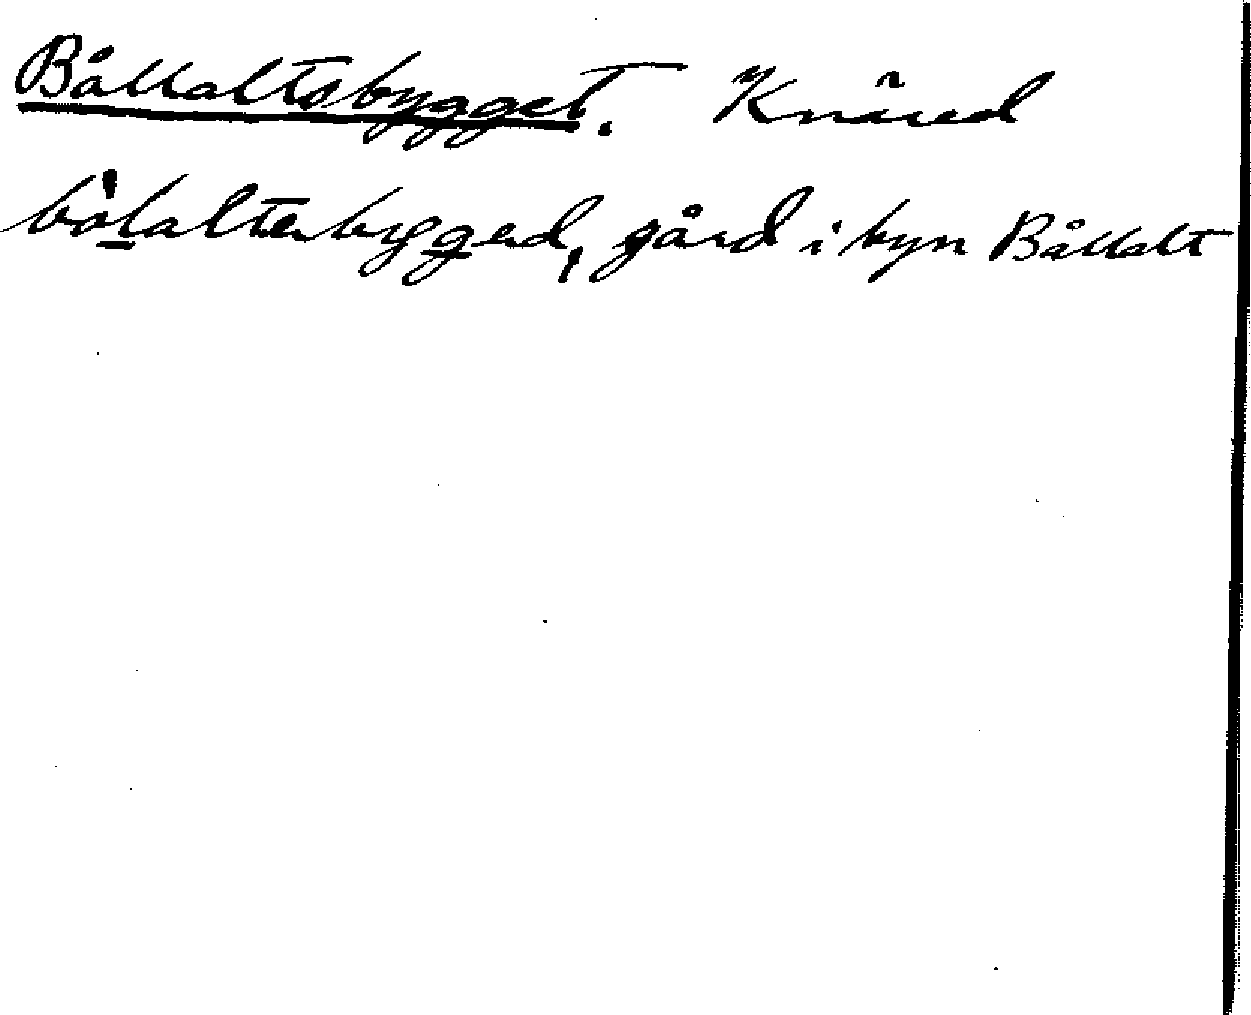 Bållaltsbygget. Knäred
bålaltabygged, gård i byn Bållalt